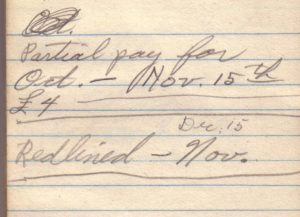 Oct.
Partial pay for
Oct. – Nov. 15th
£4
Dec. 15
Redlined – Nov.